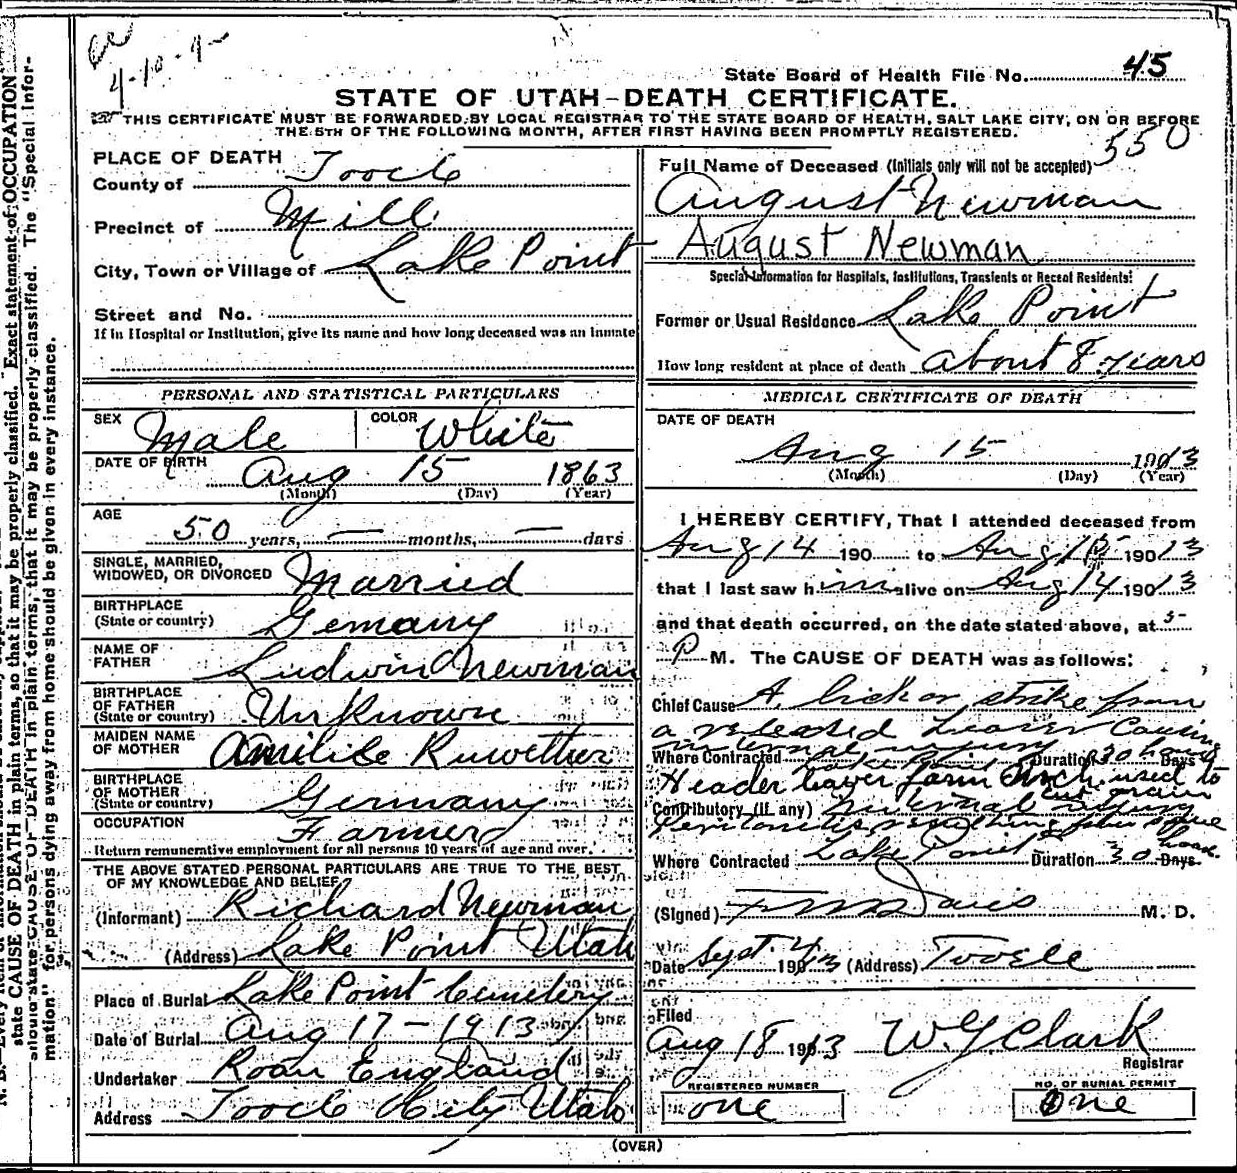 4-10-
State Board of Health File No. 45
STATE OF UTAH-DEATH CERTIFICATE.
THIS CERTIFICATE MUST BE FORWARDED BY LOCAL REGISTRAR TO THE STATE BOARD OF HEALTH, SALT LAKE CITY, ON OR BEFORE
THE 5TH OF THE FOLLOWING MONTH, AFTER FIRST HAVING BEEN PROMPTLY REGISTERED.
550
PLACE OF DEATH
County of Tooele
Precinct of Mill
City, Town or Village of Lake Point
Street and No.
If in Hospital or Institution, give its name and how long deceased was an inmate
Full Name of Deceased (Initials only will not be accepted)
August Newman
August Newman
Special Information for Hospitals, Institutions, Transients or Recent Residents:
Former or Usual Residence Lake Point
How long resident at place of death about 8 years
PERSONAL AND STATISTICAL PARTICULARS
SEX Male COLOR White
DATE OF BIRTH Aug 15 1863
(Month) (Day) (Year)
AGE
50 years, — months, — days
SINGLE, MARRIED,
WIDOWED, OR DIVORCED Married
BIRTHPLACE
(State or country) Gemany
NAME OF
FATHER Ludwin Newman
BIRTHPLACE
OF FATHER
(State or country) Unknown
MAIDEN NAME
OF MOTHER Ruwether
BIRTHPLACE
OF MOTHER
(State or country) Germany
OCCUPATION Farmer
Return remunerative employment for all persons 10 years of age and over.
THE ABOVE STATED PERSONAL PARTICULARS ARE TRUE TO THE BEST
OF MY KNOWLEDGE AND BELIEF
(Informant) Richard Newman
(Address) Lake Point Utah
Place of Burial Lake Point Cemetery
Date of Burial Aug 17-1913
Undertaker Roan England
Address Tooele City Utah
MEDICAL CERTIFICATE OF DEATH
DATE OF DEATH
Aug 15 1913
(Month) (Day) (Year)
I HEREBY CERTIFY, That I attended deceased from
Aug 14 190 to Aug 15 190 13
that I last saw him alive on Aug 14 190 13
and that death occurred, on the date stated above, at 5
P M. The CAUSE OF DEATH was as follows:
Chief Cause A kick or strike from
a released Leaver Causing
internal injury
Where Contracted Lake Point Duration 30 hours Days
Header laver farm used to
cut grain
Contributory (if any) internal injury
Peritonitis resulting from
Where Contracted Lake Point Duration 30 Days
(Signed) Davis M. D.
Date Sept. 4 1913 (Address) Tooele
Filed
Aug 18 1913 W G Clark
Registrar
REGISTERED NUMBER
one
NO. OF BURIAL PERMIT
One
(OVER)
state CAUSE OF DEATH in plain terms, so that it may be properly classified. Exact statement of OCCUPATION
should state CAUSE OF DEATH in plain terms, that it may be properly classified. The "Special Infor-
mation" for persons dying away from home should be given in every instance.